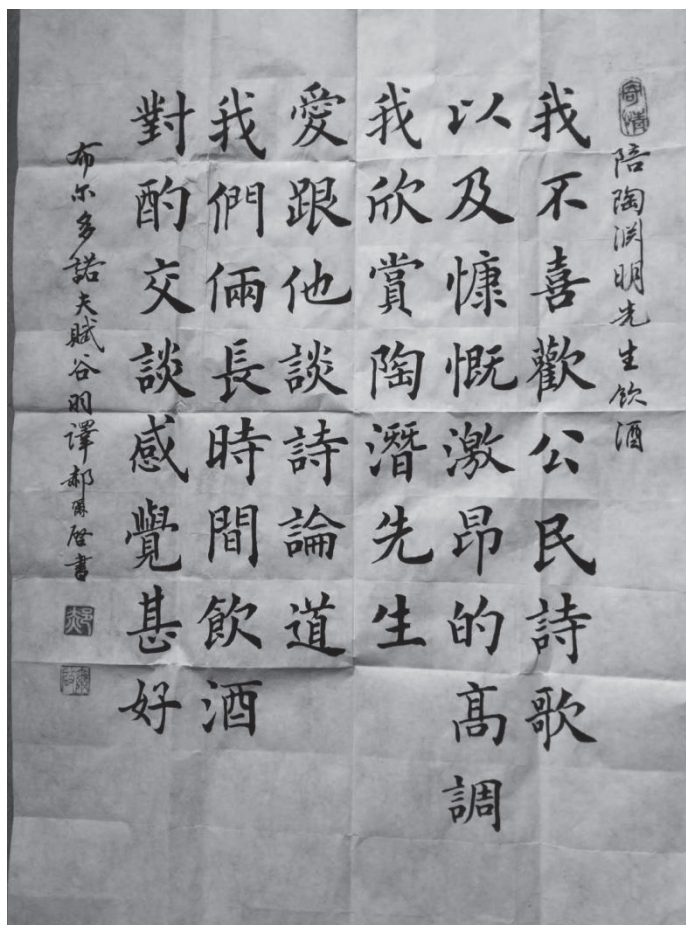 寄情
陪陶渊明先生饮酒
我不喜歡公民詩歌
以及慷慨激昂的高調
我欣賞陶潛先生
愛跟他談詩論道
我們倆長時間飲酒
對酌交談感覺甚好
布尔多諾夫賦谷羽譯郝爾啓書